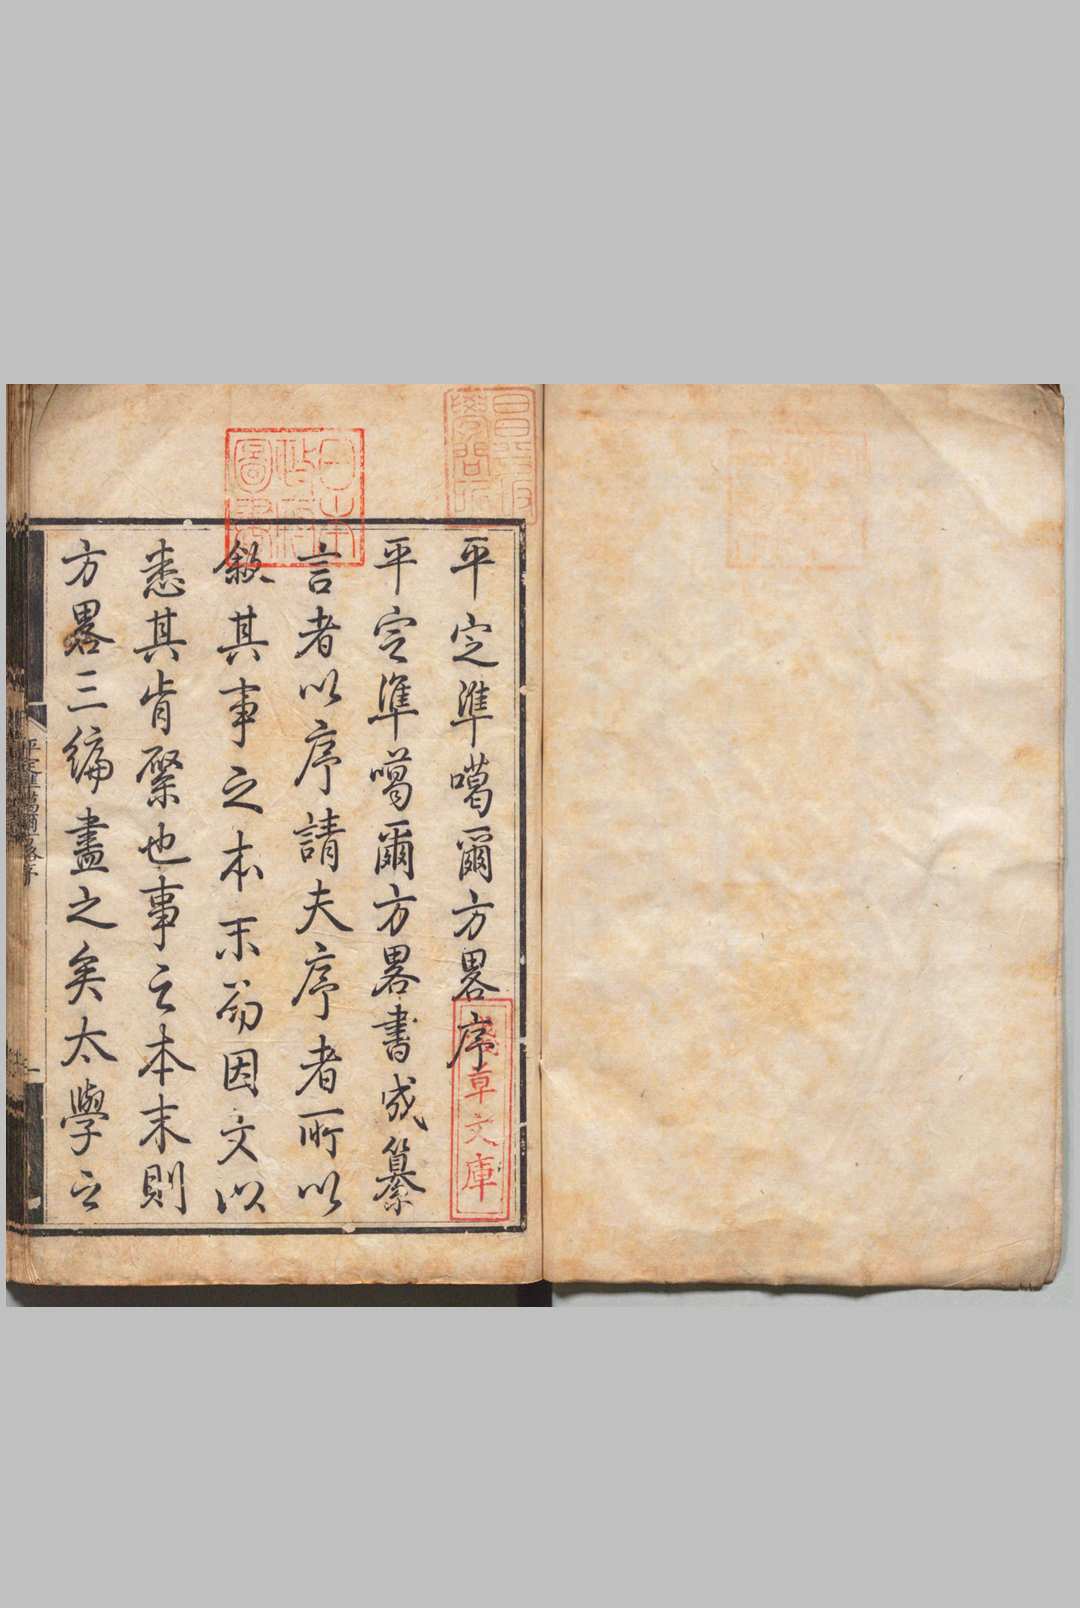 平定準噶爾方畧序
平定準噶爾方畧書成纂
言者以序請夫序者所以
敘其事之本末而因文以
悉其肯綮也事之本末則
方畧三編盡之矣太學之
平定準噶爾方畧序
一
昌平坂
學問所
日本
政府
圖書
淺草文庫